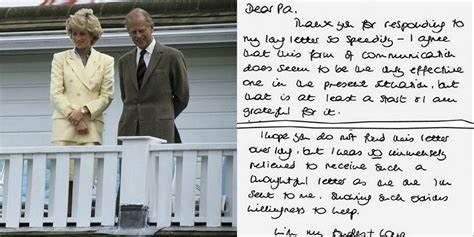 Dear Pa.
Thank you for responding to
my long letter so speedily - I agree
that this form of communication
does seem to be the only effective
one in the present situation, but
that is at least a start & I am
grateful for it.
I hope you do not find this letter
over long, but I was so immensely
relieved to receive such a
thoughtful letter as the one you
sent to me, showing such
willingness to help.
With my fondest love